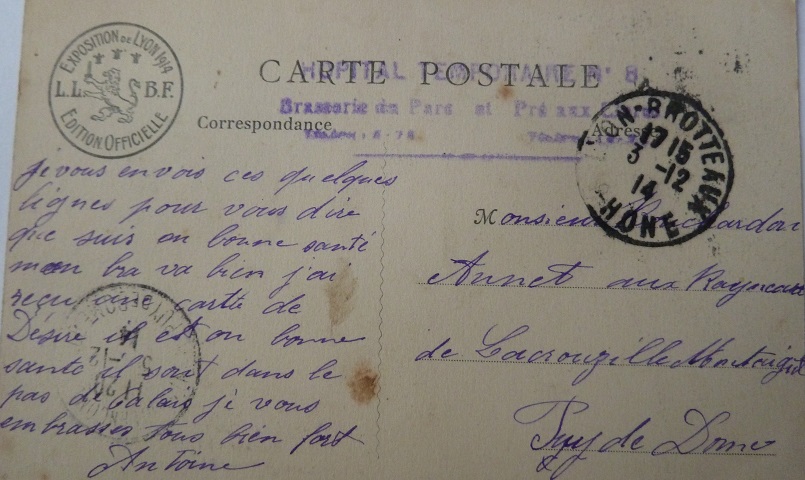 EXPOSITION DE LYON 1914
L.L. B.F.
EDITION OFFICIELLE
HOPITAL TEMPORAIRE N° 8
CARTE POSTALE
Brasserie du Parc et Pré aux
Correspondance
Adresse
LYON-BROTTEAUX
17 15
3 -12
14
RHONE
je vous envois ces quelques
lignes pour vous dire
que suis en bonne santé
mon bra va bien j'ai
reçu une carte de
Désiré il est en bonne
santé il sont dans le
pas de Calais je vous
embrasses tous bien fort
Antoine
Monsieur
Annet aux
de Lacrouzille
Puy de Dome